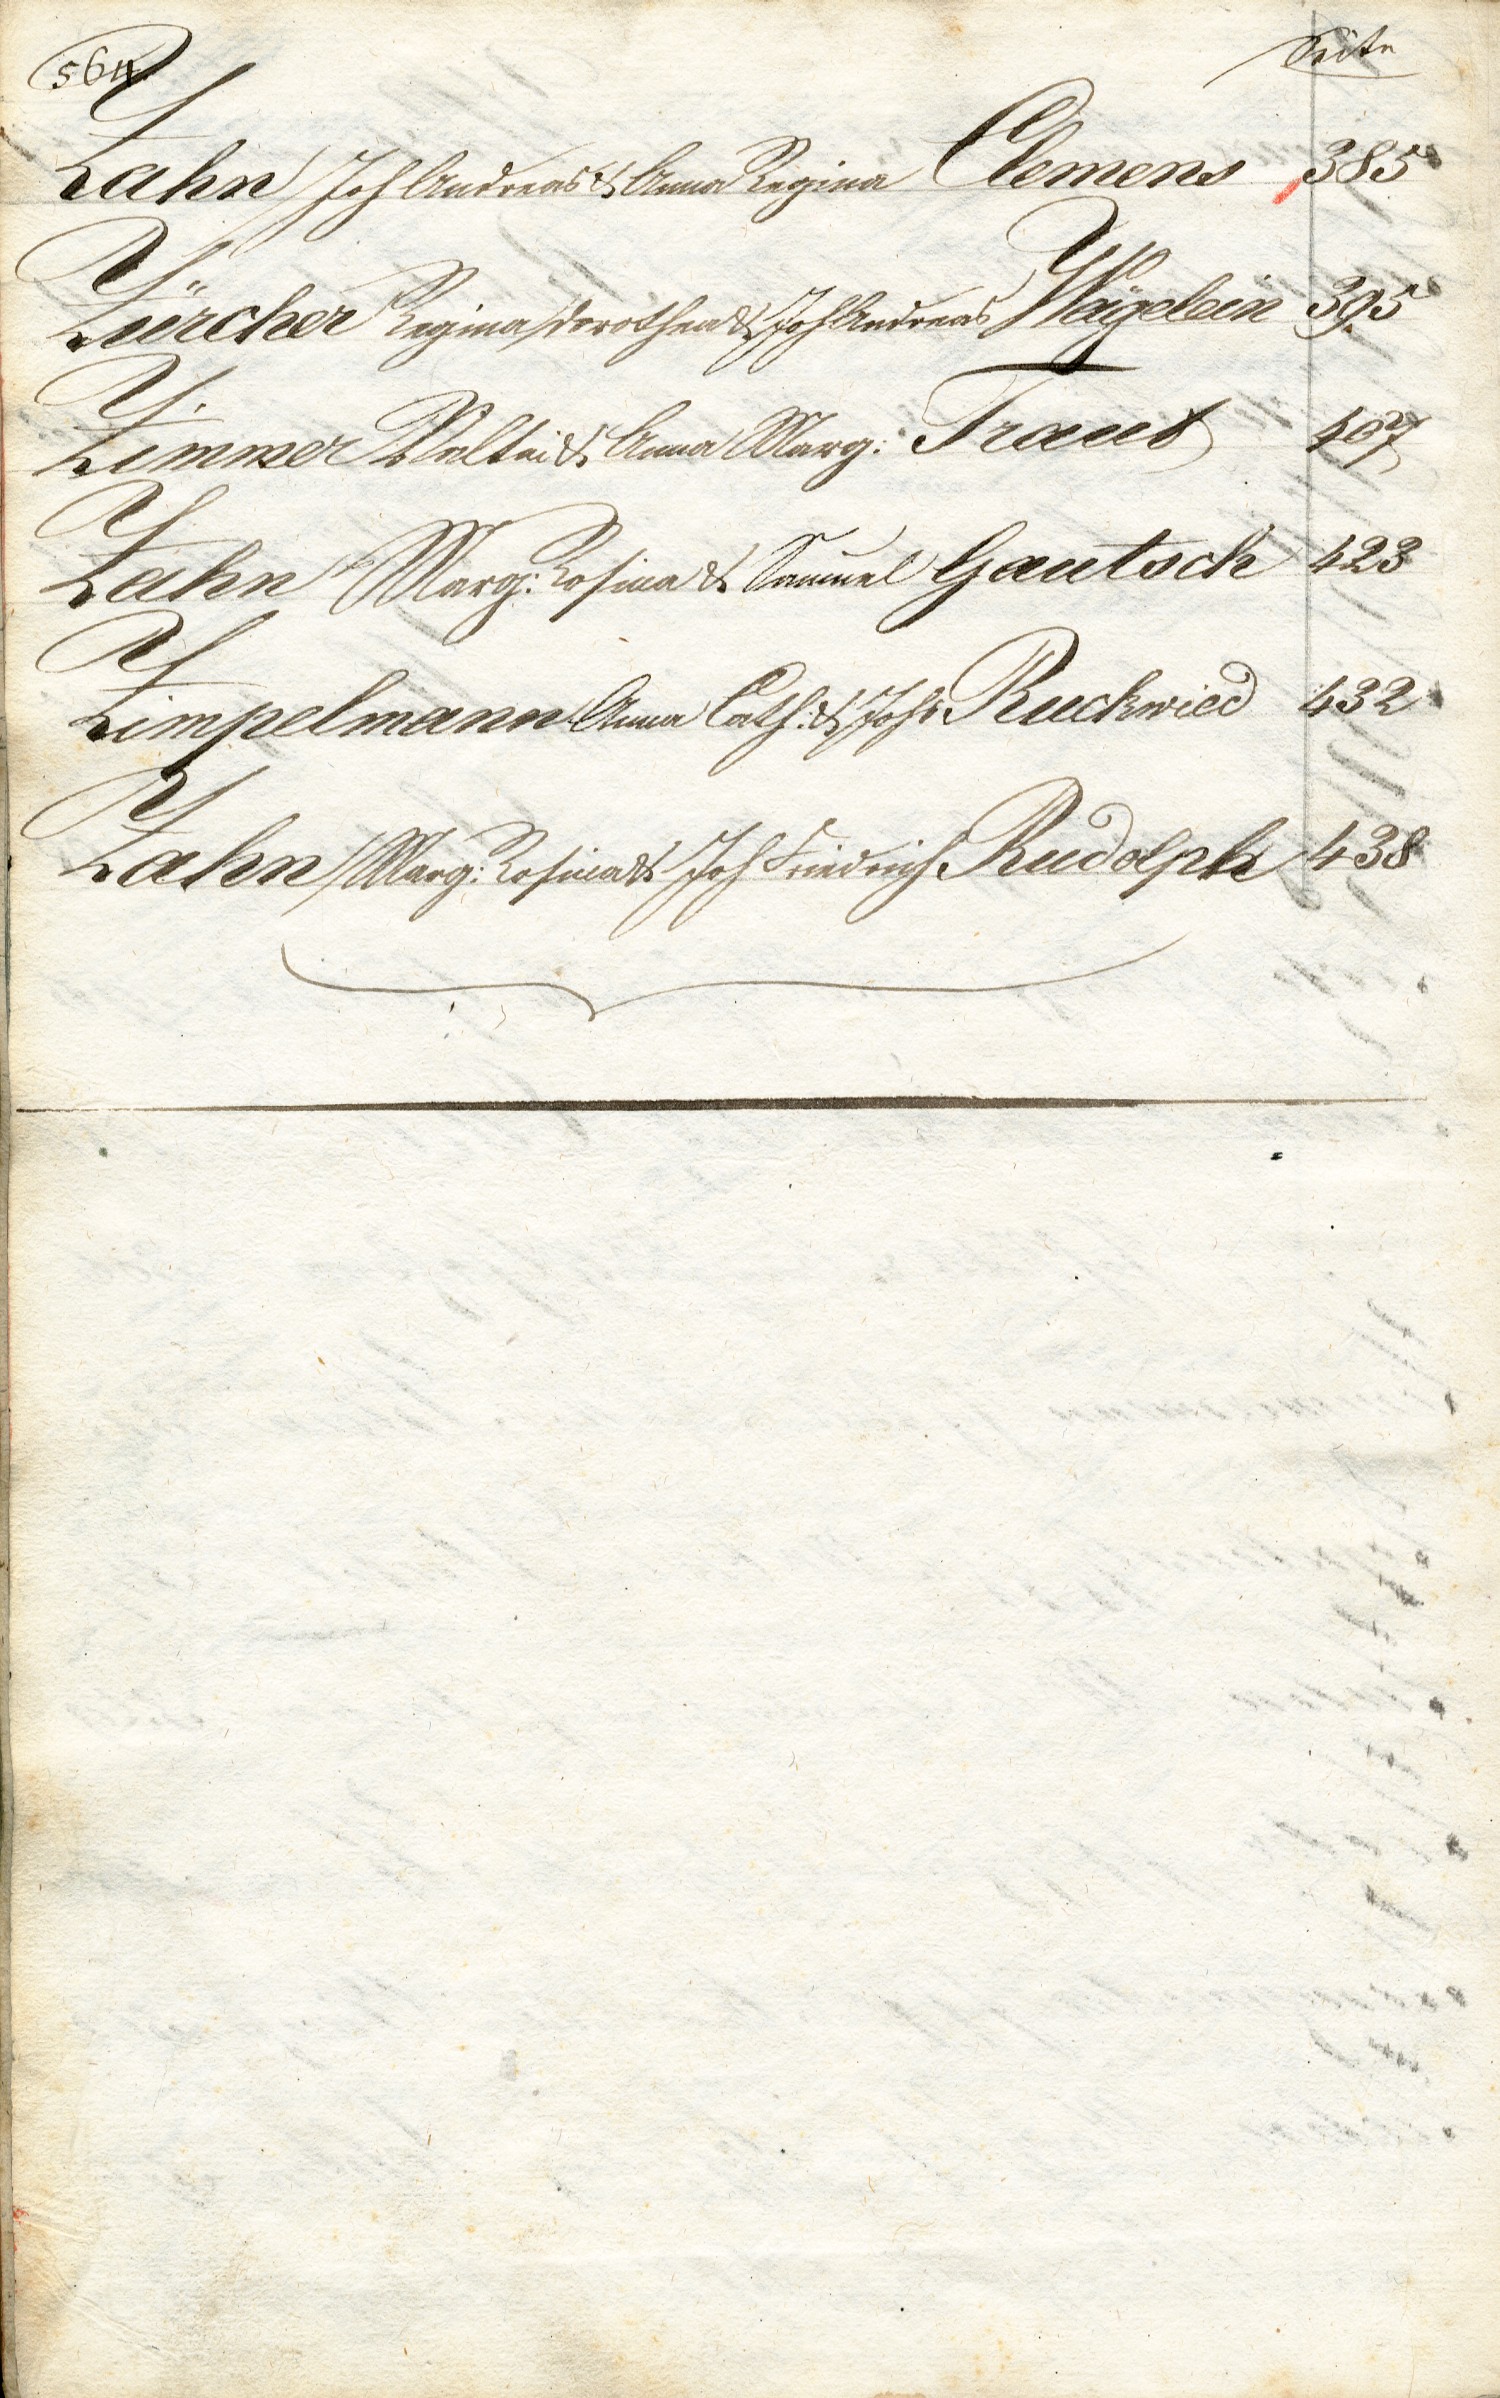 564
Seite
Zahn Joh Andreas & Anna Regina Clemens 385
Zürcher Regina Dorothea & Joh Andreas Wägelein 395
Zimmer Veltin & Anna Marg: Traut 407
Zahn Marg: Rosina & Samuel Gautsch 423
Zimpelmann Anna Cath: & Joh: Ruckwied 432
Zahn Marg: Rosina & Joh Friedrich Rudolph 438